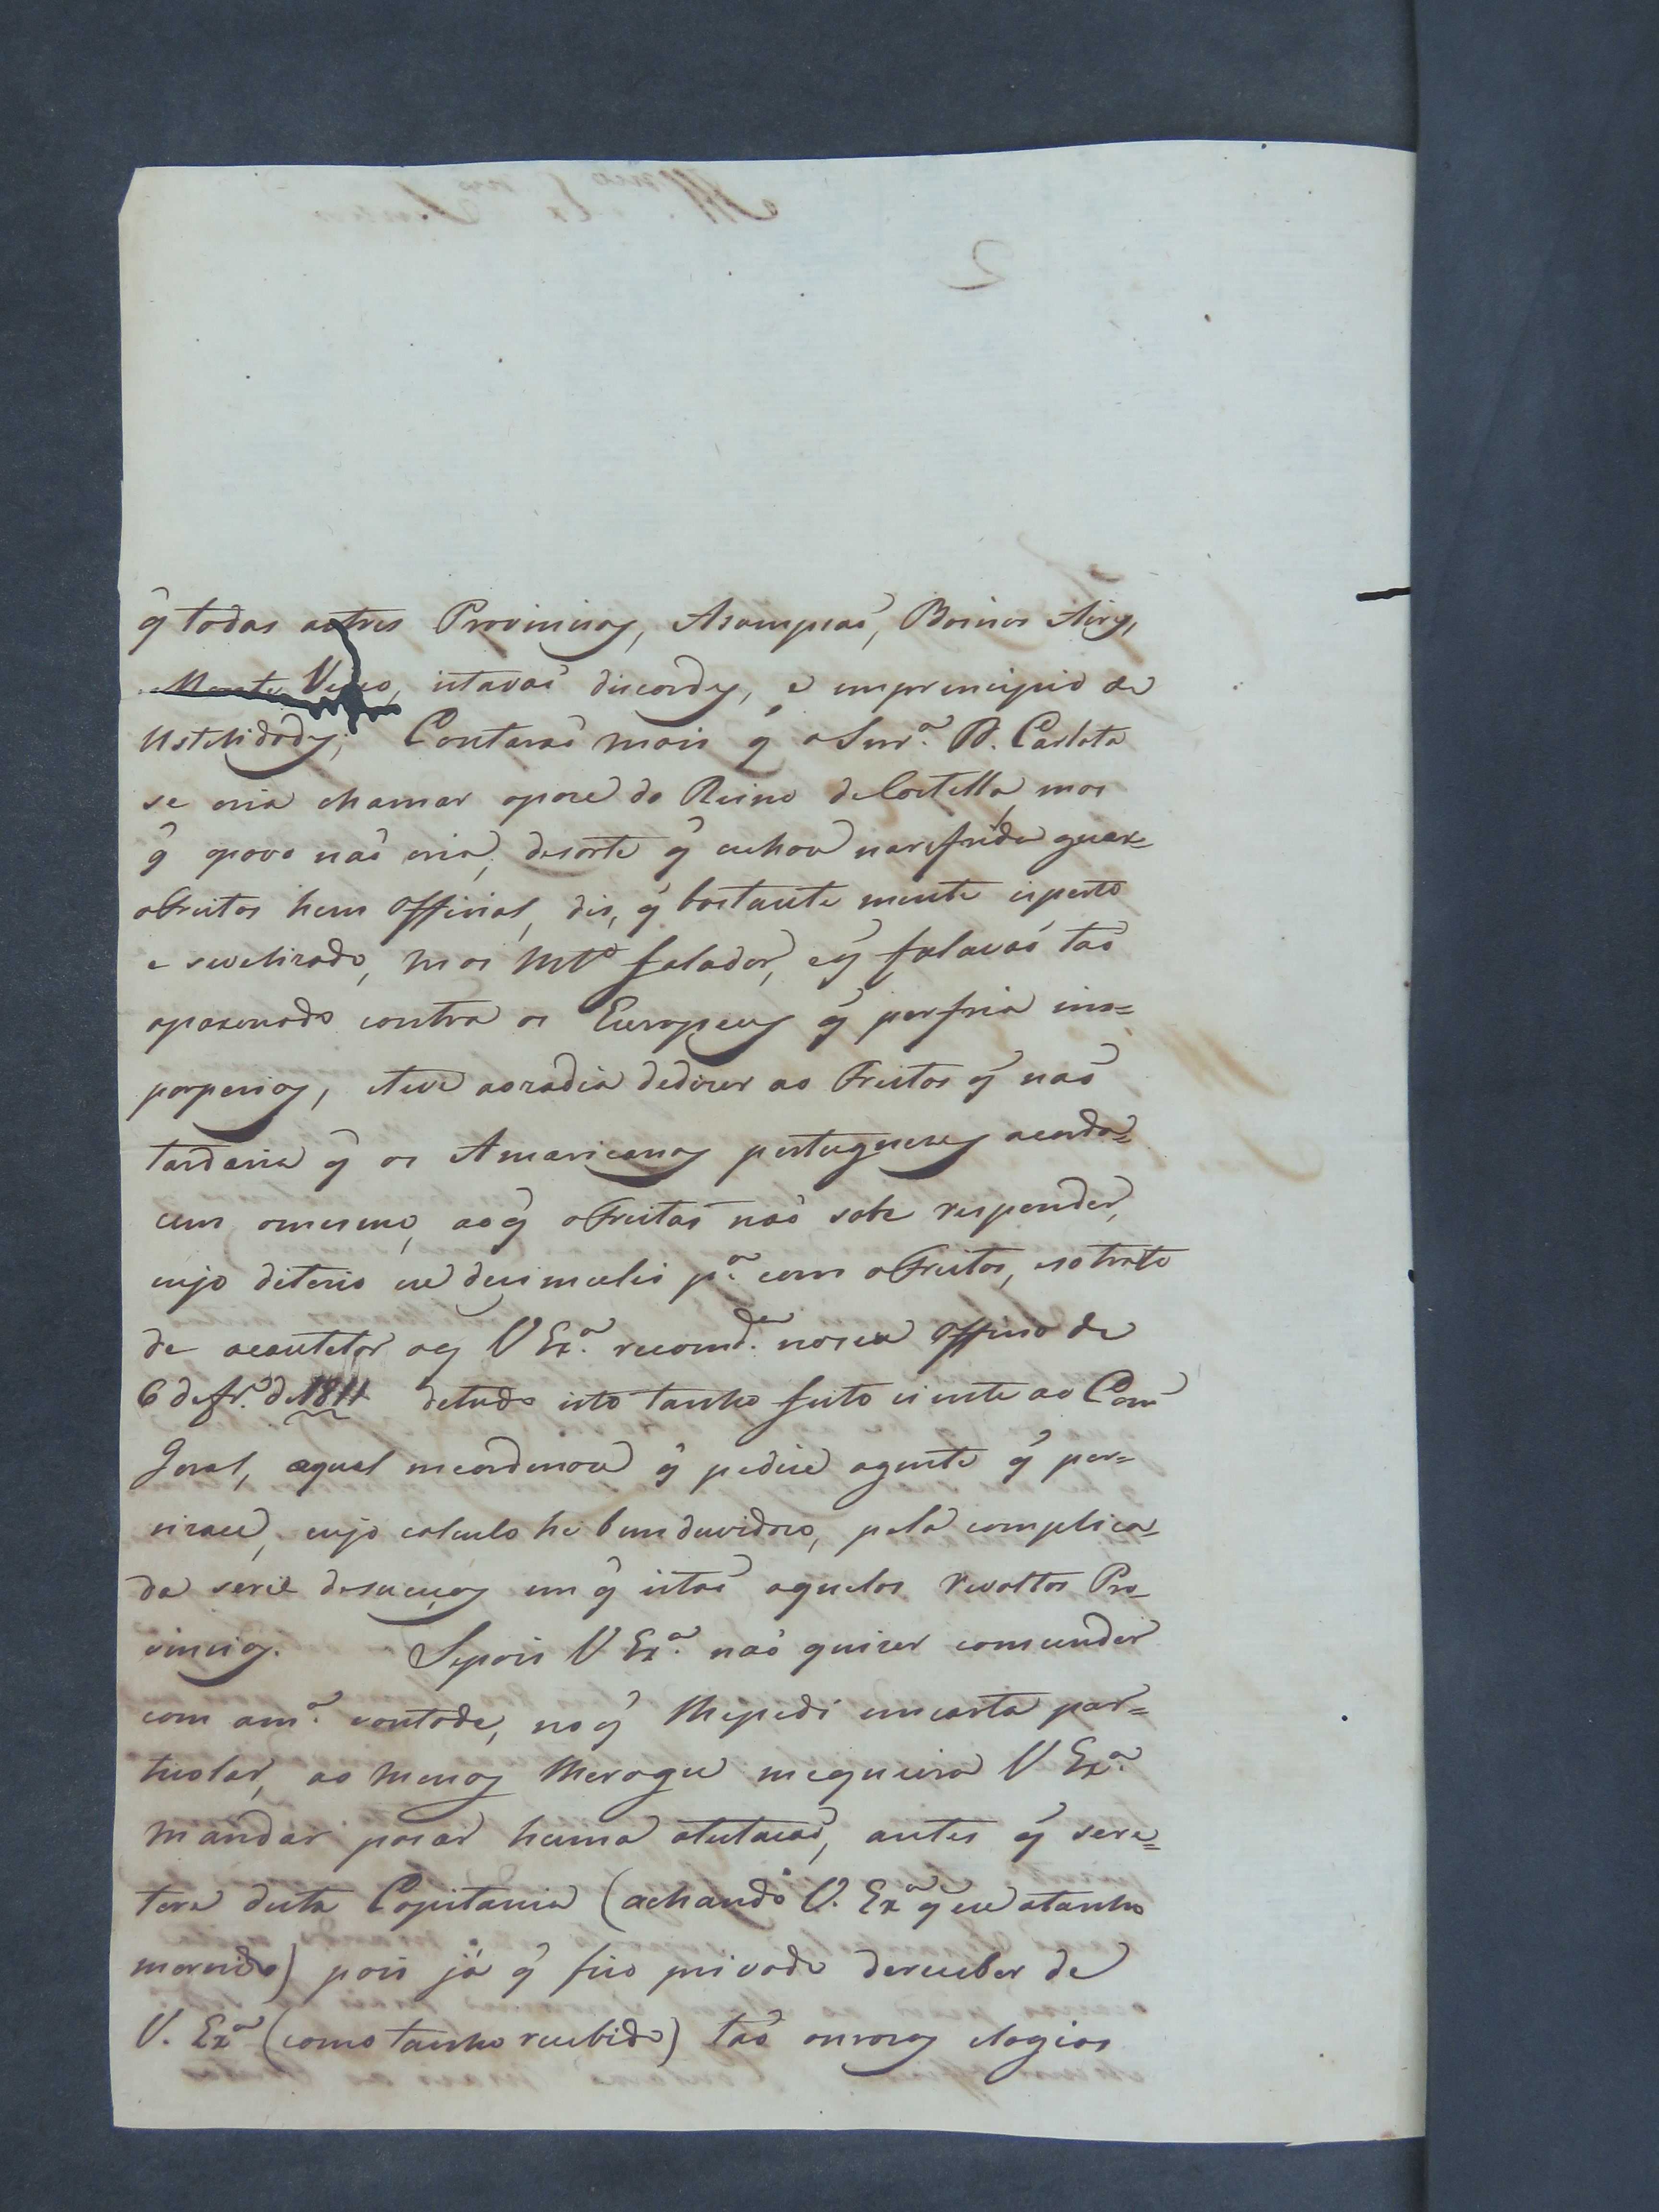 q̃ todas as tres Provincias, Asampsaõ, Boinos Airys,
Monte Vidio, istavaõ discordes, e em principio de
Ustelidades; Contaraõ mais q̃ a Snrᵃ. D. Carlota
se cria chamar a pose do Reino de Castella, mas
q̃ o povo naõ cria, de sorte q̃ achou na refrida guar=
o Freitas hum Official, dis, q̃ bastante mente esperto
e sevelizado, mas Mtᵒ falador, e q̃ falavaõ taõ
apaxonado contra os Europeus q̃ perfiria ins=
porperios, e teve a ozadia de dizer ao Freitas q̃ naõ
tardaria q̃ os Amaricanos portuguezes acorda=
cem o mesmo, ao q̃ o Freitas naõ sobe responder,
cujo diterio eu desimulei pᵃ. com o Freitas, e so trato
de acautelar o q̃ V Exᵃ. recomdᵃ. no seu Officio de
6 de frᵒ. de 1811 de tudo isto tanho feito ciente ao Com
Geral, o qual me ordenou q̃ pedise a gente q̃ per=
cizace, cujo calculo he bem duvidozo, pela complica=
da serie de suceços em q̃ istaõ aquelas revoltas Pro=
vincias. Se pois V Exᵃ. naõ quizer comcender
com a mᵃ. vontade, no q̃ lhe pedi em carta par=
ticolar, ao menos lhe rogu me queira V Exᵃ.
mandar pasar huma atetacaõ, antes q̃ se re=
tere desta Capitania (achando V. Exᵃ q̃ eu a tanho
merecido) pois já q̃ fico privado de receber de
V. Exᵃ (como tanho recebido) taõ onrozos elogios